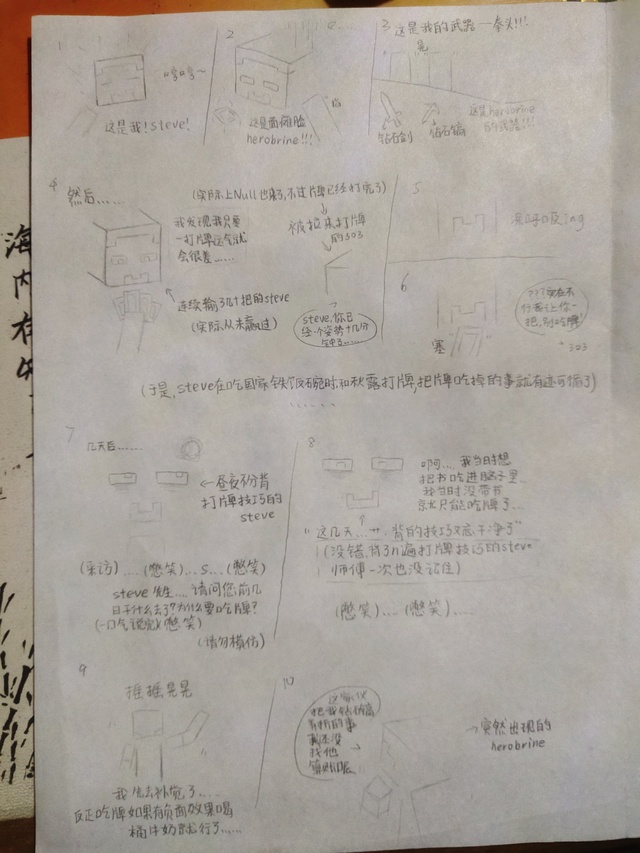 1
哼哼~
这是我!steve!
2
这是面瘫脸
herobrine!!!
3 这是我的武器一拳头!!!
钻石剑
钻石镐
这是herobrine
的武器!!!
4 然后……
(实际上Null也来了,不过片牌已经打完了)
我发现我只要
一打牌运气就
会很差……
被拉来打牌
的303
连续输了几十把的steve
(实际从未赢过)
steve,你已
5
6
塞
303
(于是,steve在吃国家铁饭碗时,和秋露打牌,把片牌吃掉的事就有迹可循了)
……
7
几天后……
← 昼夜不分背
打牌技巧的
steve
(采访)….(憋笑)…s…(憋笑)
steve先生….请问您前几
日干什么去了?为什么要吃牌?
(一口气说完)(憋笑)
(请勿模仿)
8
啊…. 我当时想
把书吃进脑子里
补当时没带书
就只能吃牌了…
(没错,背了n遍打牌技巧的steve
师傅一次也没记住)
(憋笑)….(憋笑)….
9
摇摇晃晃
我先去补觉了….
反正吃牌如果有负面效果喝
桶牛奶就行了……
10
把我钻石镐
弄折的事
我还没
找他
算账呢
→突然出现的
herobrine